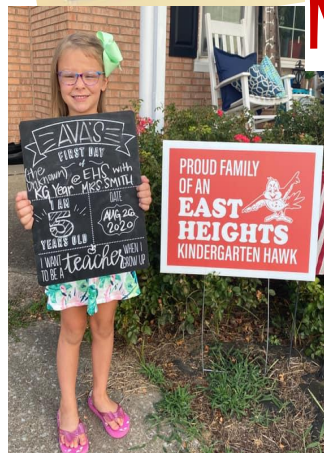 AVA'S
FIRST DAY
(the unknown) of
KG Year @ EHS with
MRS. SMITH
I AM
5
YEARS OLD
DATE
AUG 26
2020
I WANT TO BE A teacher WHEN I GROW UP
PROUD FAMILY
OF AN
EAST
HEIGHTS
KINDERGARTEN HAWK